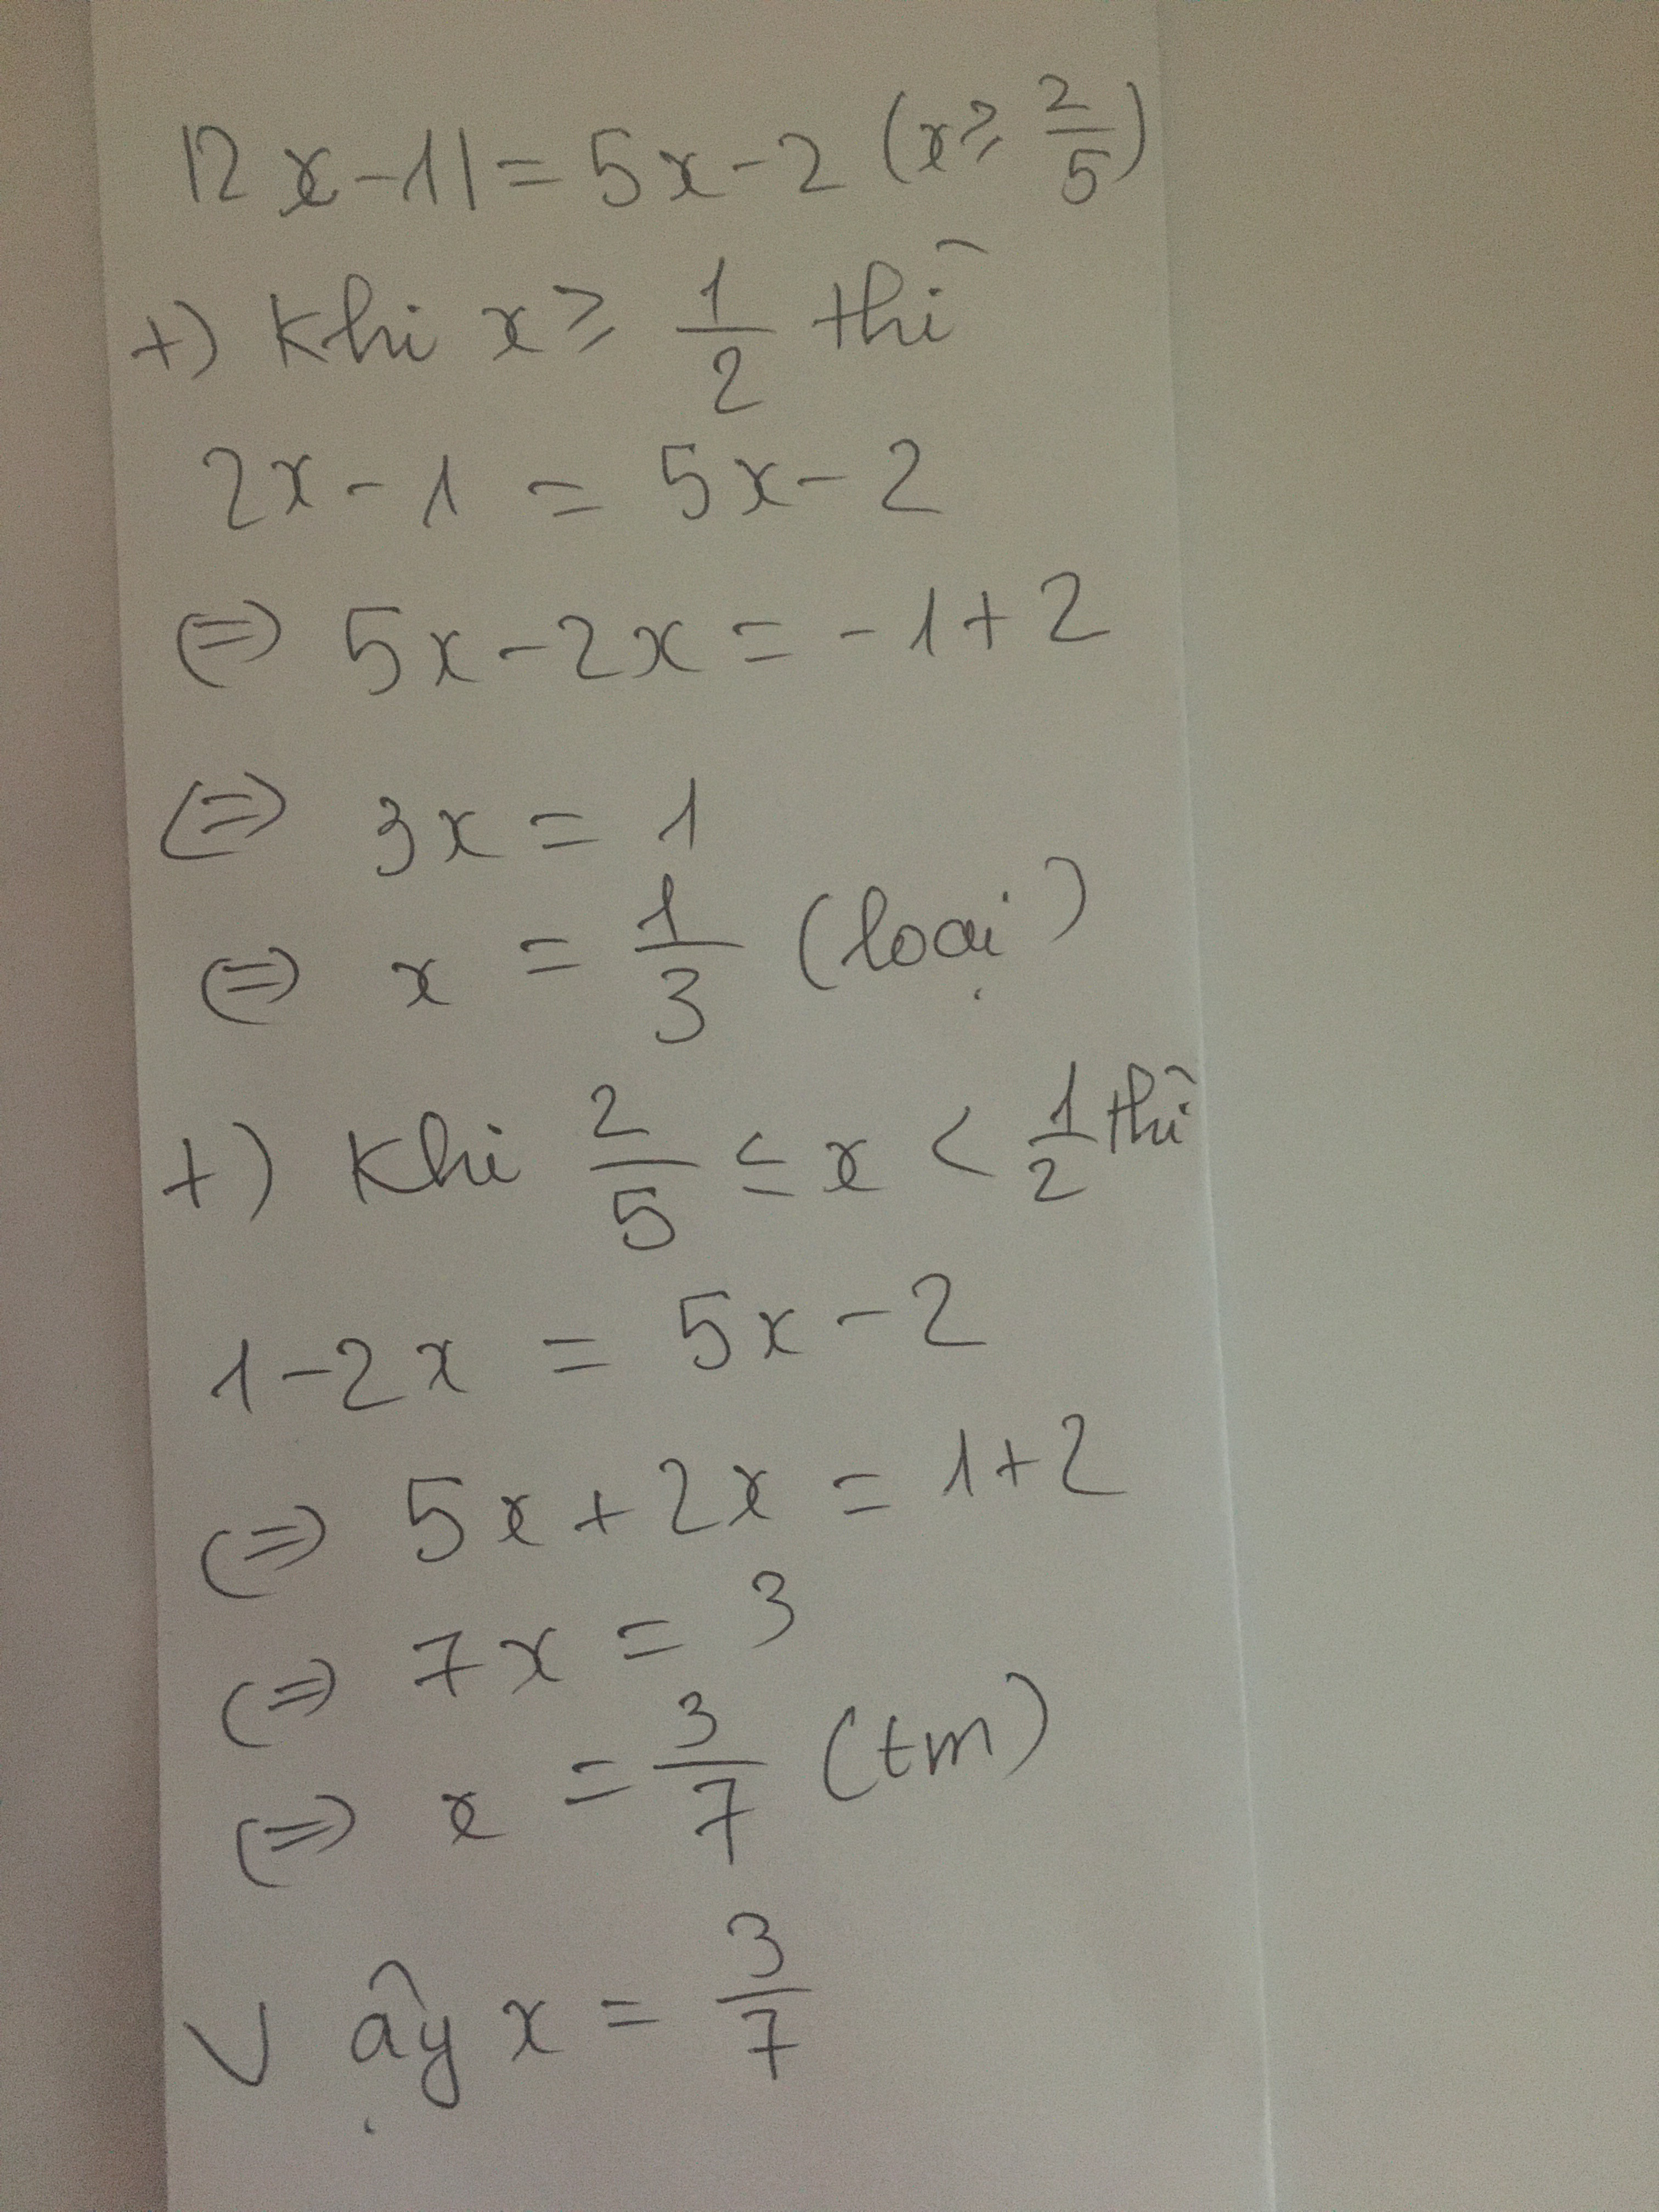 |2x-1|=5x-2 (x≥ 2/5)
+) Khi x≥ 1/2 thì
2x-1 = 5x-2
(=) 5x-2x = -1+2
(=) 3x = 1
(=) x = 1/3 (loại)
+) Khi 2/5 ≤ x < 1/2 thì
1-2x = 5x-2
(=) 5x+2x = 1+2
(=) 7x = 3
(=) x = 3/7 (tm)
Vậy x = 3/7